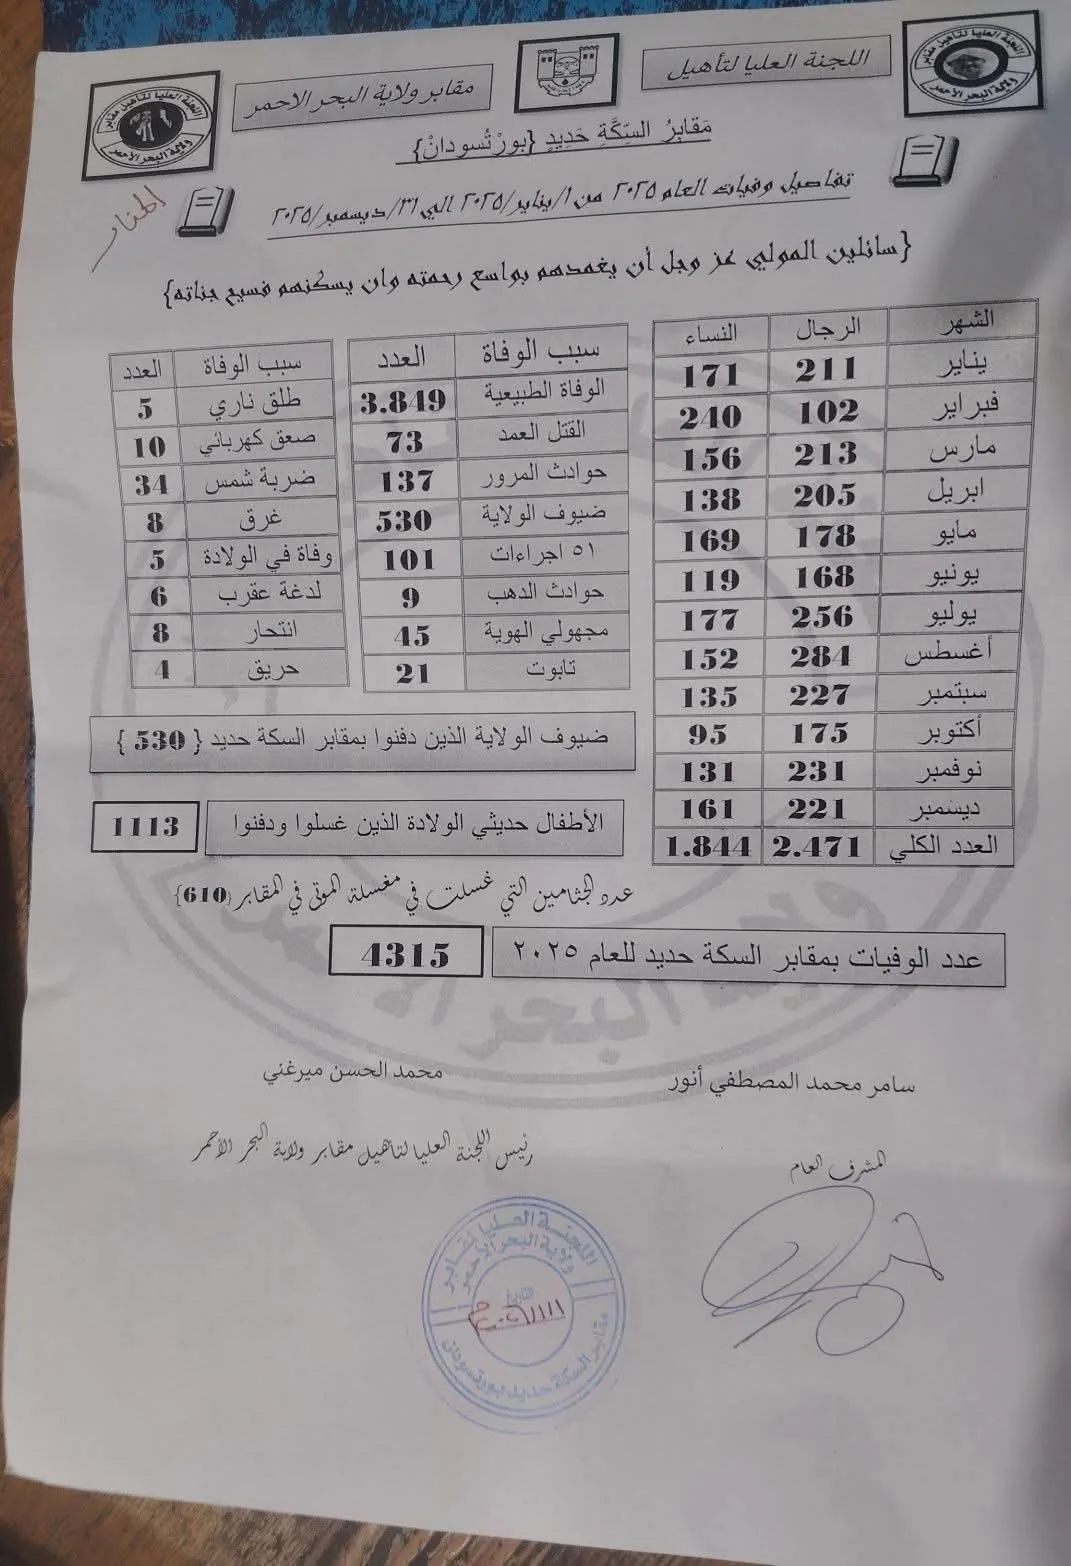 اللجنة العليا لتأهيل
مقابر ولاية البحر الاحمر
مَقَابِرُ السِكَّةِ حَدِيدِ {بورْتُسودانْ}
تفاصيل وفيات العام ٢٠٢٥ من ١/يناير/٢٠٢٥ الي ٣١/ديسمبر/٢٠٢٥
{سائلين المولي عز وجل أن يغمدهم بواسع رحمته وان يسكنهم فسيح جناته}
الشهر الرجال النساء
يناير 211 171
فبراير 102 240
مارس 213 156
ابريل 205 138
مايو 178 169
يونيو 168 119
يوليو 256 177
أغسطس 284 152
سبتمبر 227 135
أكتوبر 175 95
نوفمبر 231 131
ديسمبر 221 161
العدد الكلي 2.471 1.844
سبب الوفاة العدد
الوفاة الطبيعية 3.849
القتل العمد 73
حوادث المرور 137
ضيوف الولاية 530
٥١ اجراءات 101
حوادث الدهب 9
مجهولي الهوية 45
تابوت 21
سبب الوفاة العدد
طلق ناري 5
صعق كهربائي 10
ضربة شمس 34
غرق 8
وفاة في الولادة 5
لدغة عقرب 6
انتحار 8
حريق 4
ضيوف الولاية الذين دفنوا بمقابر السكة حديد { 530 }
الأطفال حديثي الولادة الذين غسلوا ودفنوا 1113
عدد الجثامين التي غسلت في مغسلة الموتى في المقابر {610}
عدد الوفيات بمقابر السكة حديد للعام ٢٠٢٥ 4315
سامر محمد المصطفي أنور
محمد الحسن ميرغني
المشرف العام
رئيس اللجنة العليا لتاهيل مقابر ولاية البحر الأحمر
اللجنة العليا لمقابر
ولاية البحر الأحمر
التاريخ
مقابر السكة حديد بورتسودان